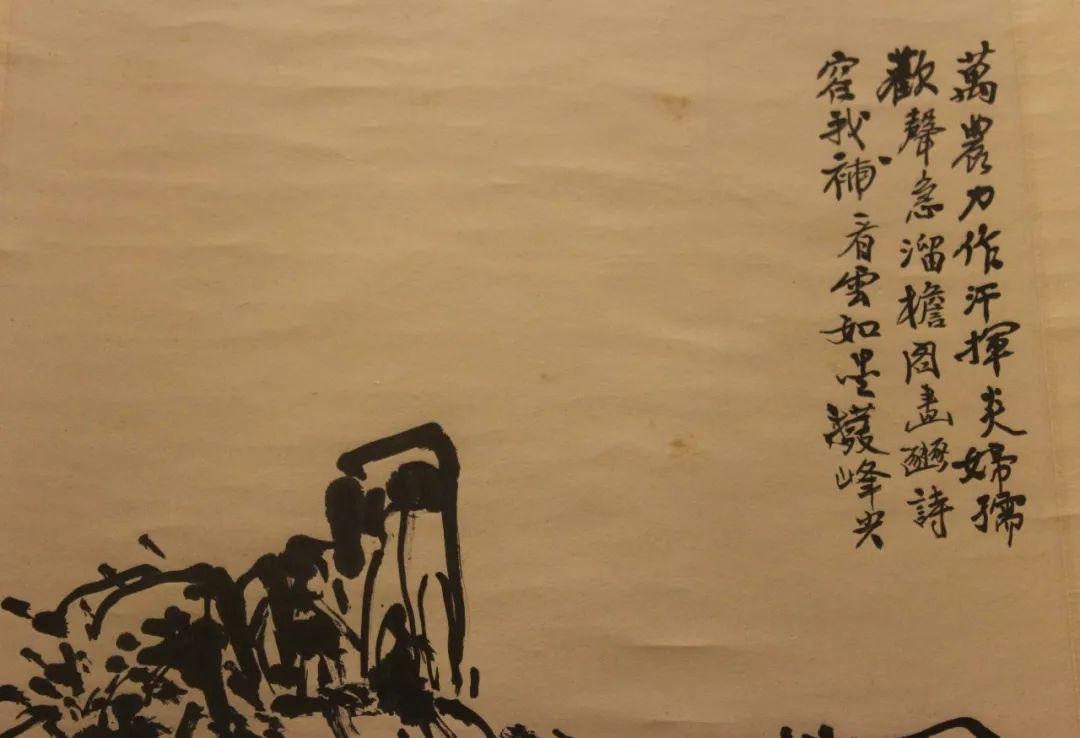 萬農力作汗揮炎婦孺
歡聲急溜檐图畫豳詩
容我補看雲如墨潑峰尖